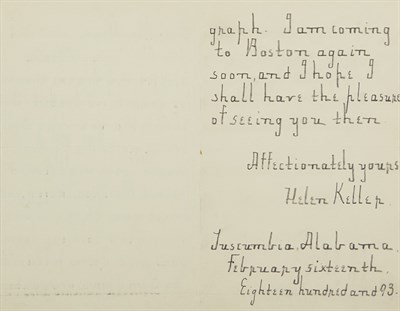 graph. I am coming
to Boston again
soon, and I hope I
shall have the pleasure
of seeing you then
Affectionately yours
Helen Keller
Tuscumbia, Alabama,
February sixteenth,
Eighteen hundred and 93.